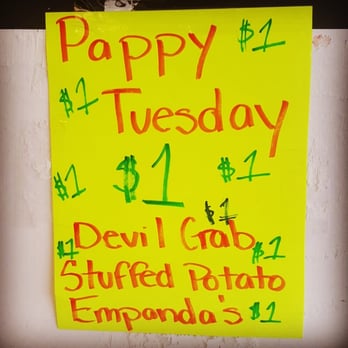 Pappy $1
$1 Tuesday
$1 $1 $1
$1
$1 Devil Crab $1
Stuffed Potato
Empanda's $1